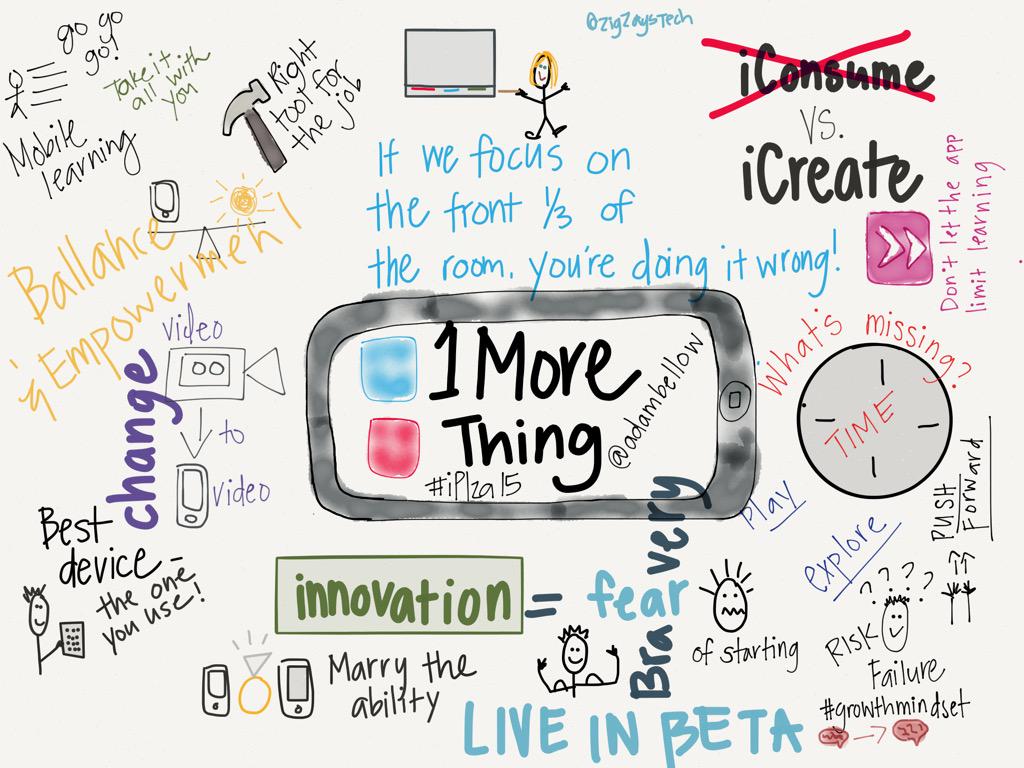 @ZigZaysTech
go go
go!
Take it
all with
you
Mobile
learning
Right
tool for
the job
iConsume
vs.
iCreate
If we focus on
the front 1/3 of
the room, you're doing it wrong!
Don't let the app
limit learning
Ballance
& Empowerment
change
video
to
video
1 More
Thing
@adambellow
#iPlza15
What's missing?
TIME
Play
explore
PUSH
Forward
Best
device -
the one
you use!
innovation = fear
Bravery
of starting
Marry the
ability
LIVE IN BETA
? ? ? ?
RISK
Failure
#growthmindset